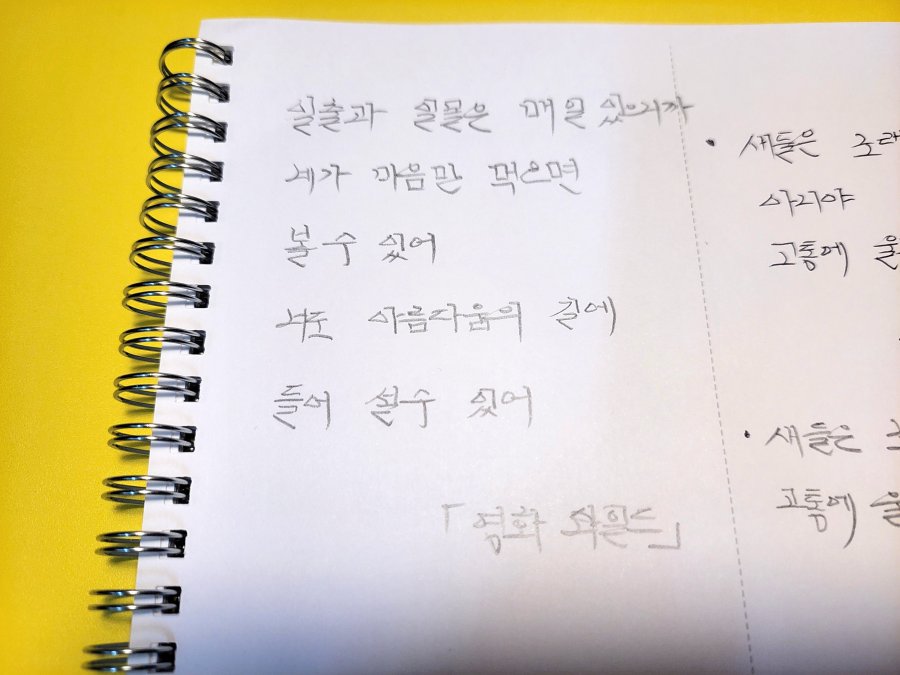 일출과 일몰은 매일 있으니까
네가 마음만 먹으면
볼 수 있어
너도 아름다움의 길에
들어 설수 있어
「영화 와일드」
• 새들은 노래
아니야
고통에
• 새들은
고통에